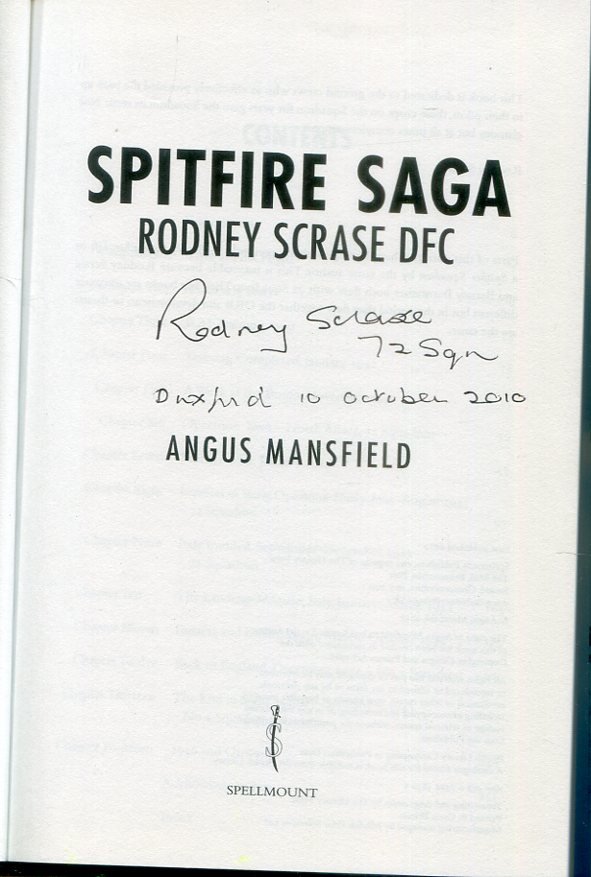 SPITFIRE SAGA
RODNEY SCRASE DFC
Rodney Scrase
72 Sqn
Duxford 10 October 2010
ANGUS MANSFIELD
SPELLMOUNT